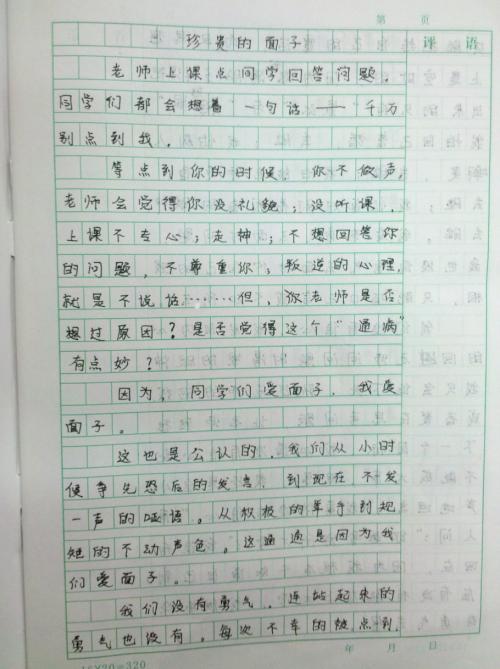 第 页
评语
珍贵的面子
老师上课点同学回答问题。
同学们都会想着一句话——千万
别点到我。
等点到你的时候,你不做声。
老师会觉得你没礼貌;没听课,
上课不专心;走神;不想回答你
的问题,不尊重你;叛逆的心理,
就是不说话……但,你老师是否
想过原因?是否觉得这个"通病"
有点妙?
因为,同学们爱面子,我爱
面子。
这也是公认的,我们从小时
候争先恐后的发言,到现在不发
一声的哑语。从积极的举手到规
矩的不动声色。这通通是因为我
们爱面子。
我们没有勇气,连站起来的
勇气也没有。每次不幸的被点到,
年 月 日
16X20=320